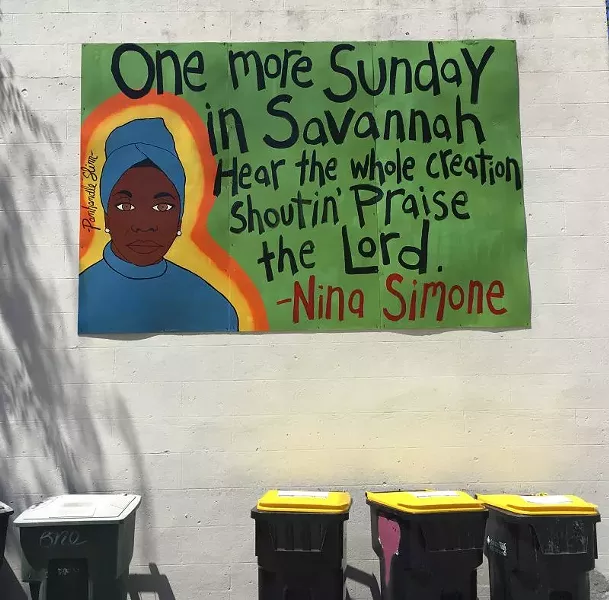 One more Sunday
in Savannah
Hear the whole creation
shoutin' Praise
the Lord.
-Nina Simone
-Panhandle Slim-